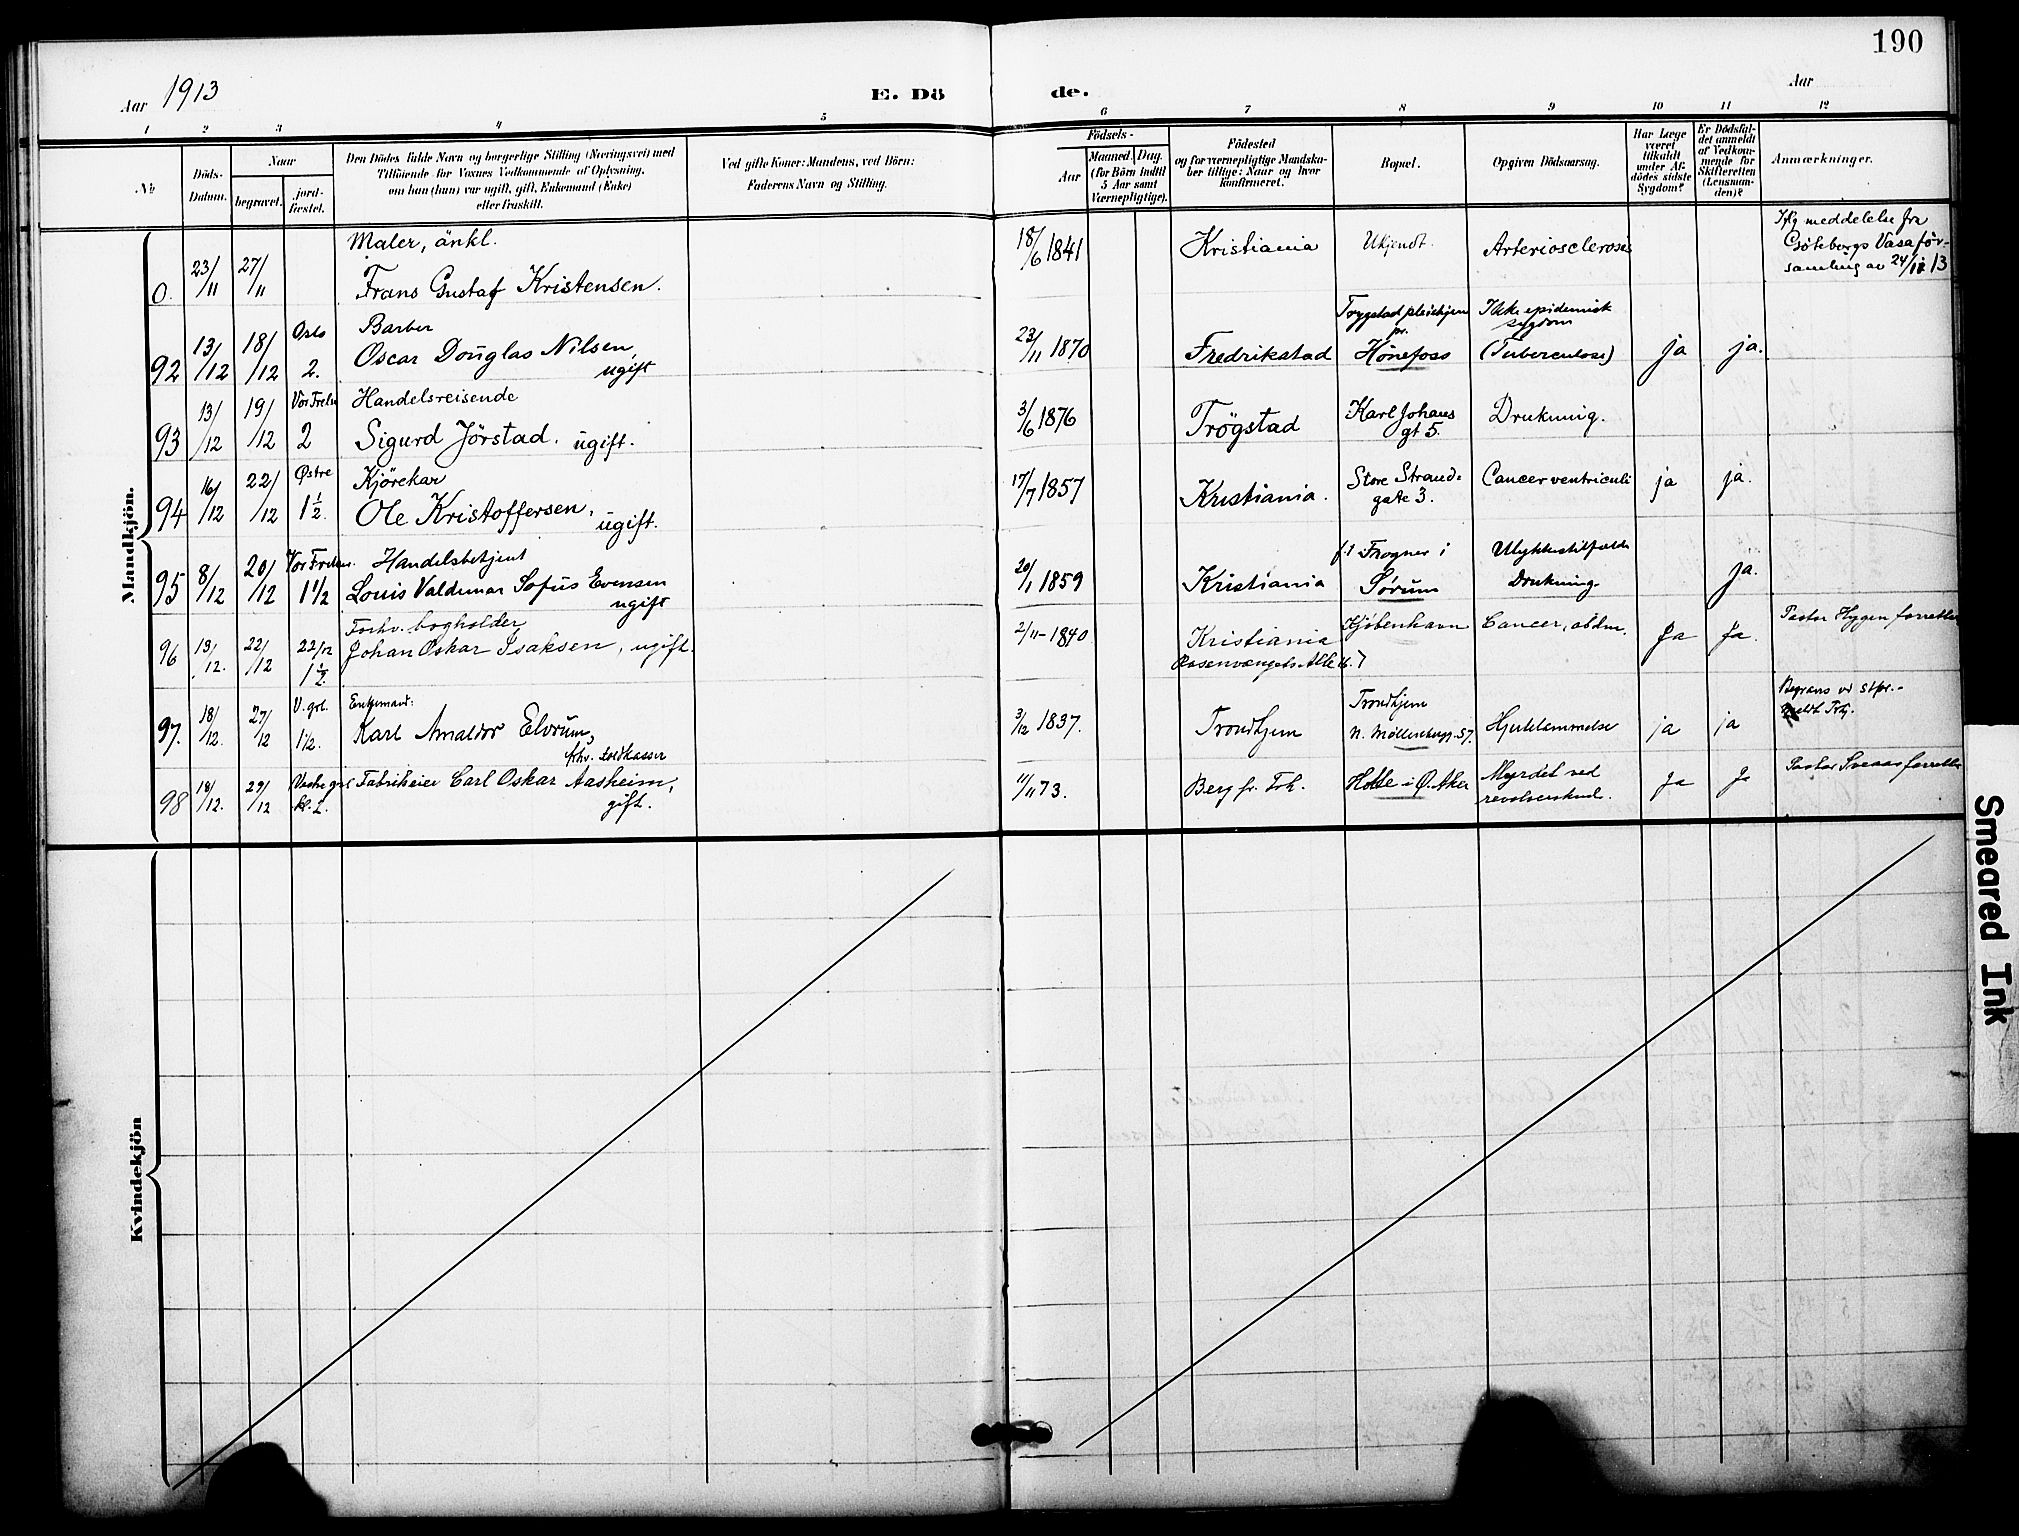 190
Aar 1913
E. Dö
de.
Aar
1 2 3 4 5 6 7 8 9 10 11 12
No
Döds-
Datum.
Naar
begravet.
jord-
fæstet.
Den Dödes fulde Navn og borgerlige Stilling (Næringsvei) med
Tilföiende för Voxnes Vedkommende af Oplysning,
om han (hun) var ugift, gift, Enkemand (Enke)
eller fraskilt.
Ved gifte Koner: Mandens, ved Börn:
Faderens Navn og Stilling.
Födsels-
Aar
Maaned. Dag.
(for Börn indtil
5 Aar samt
Værnepligtige).
Födested
og for værnepligtige Mandska-
ber tillige: Naar og hvor
konfirmeret.
Bopæl.
Opgiven Dödsaarsag.
Har Læge
været
tilkaldt
under Af-
dödes sidste
Sygdom?
Er Dödsfal-
det anmeldt
af Vedkom-
mende for
Skifteretten
(Lensman-
den)?
Anmærkninger.
Mandkjön.
Maler, änkl.
0. 23/11 27/11 Frans Gustaf Kristensen. 18/6 1841 Kristiania Ukjendt. Arteriosclerosis
meddelelse fra
Göteborgs Vasaför-
samling av 24/11 13
Oslo Barber
92 13/12 18/12 2. Oscar Douglas Nilsen,
ugift
23/11 1870 Fredrikstad
pleiehjem
pr.
Hønefoss
Ikke epidemisk
sygdom
(Tuberculose) ja ja.
Vor Frels Handelsreisende
93 13/12 19/12 2 Sigurd Jörstad. ugift. 3/6 1876 Trögstad
Karl Johans
gt 5.
Drukning.
Østre Kjörekar
94 16/12 22/12 1 1/2. Ole Kristoffersen, ugift. 17/7 1857 Kristiania.
Store Strand-
gate 3.
Cancer ventriculi ja ja.
Vor Frelsen. Handelsbetjent
95 8/12 20/12 1 1/2 Louis Valdemar Sofus Evensen
ugift
20/1 1859 Kristiania
Frogner i
Sørum
Ulykkestilfælde
Drukning. ja.
Forhv. bogholder
96 13/12. 22/12 22/12 1 1/2. Johan Oskar Isaksen, ugift. 2/11-1840 Kristiania Kjøbenhavn Cancer, abdm. Ja Ja. Pastor Hygen forretter
Rosenvængets Allé
V. grl. Enkemand:
97. 18/12. 27/12 1 1/2. Karl Arnaldor Elvrum,
fhv. toldkasser
3/12 1837. Trondhjem
Trondhjem
n. Möllenbergg. 57.
Hjertelammelse ja ja
98 18/12. 29/12 Vestre grl. kl. 2. Fabrikeier Carl Oskar Aasheim,
gift.
11/11 73. Berg pr. Frh. Holte i Ø. Aker
Myrdet ved
revolverskud. Ja Ja Pastor Sveaas forretter
Kvindekjön
Smeared Ink